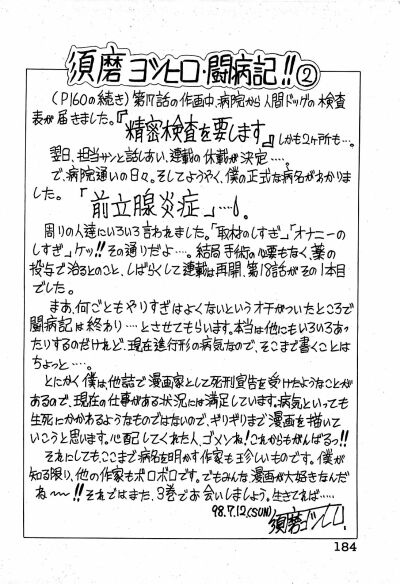 須磨ヨシヒロ・闘病記!!②
(P160の続き)第17話の作画中、病院から人間ドッグの検査
表が届きました。『精密検査を要します』しかも2ヶ所も…。
翌日、担当サンと話しあい、連載の休載が決定……。
で、病院通いの日々。そしてようやく、僕の正式な病名がわかりま
した。「前立腺炎症」……。
周りの人達にいろいろ言われました。「取材のしすぎ」「オナニーの
しすぎ」ケッ!!その通りだよ…。結局手術の心要もなく、薬の
投与で治るとのこと、しばらくして連載は再開、第18話がその1本目
でした。
まぁ、何ごともやりすぎはよくないというオチがついたところで
闘病記は終わり……とさせてもらいます。本当は他にもいろいろあっ
たりするのだけれど、現在進行形の病気なので、そこまで書くことは
ちょっと……。
とにかく僕は他誌で漫画家として死刑宣告を受けたようなことが
あるので、現在の仕事がある状況には満足しています。病気といっても
生死にかかわるようなものではないので、ギリギリまで漫画を描いて
いこうと思います。心配してくれた人、ゴメンね!これからもがんばるっ!!
それにしても、ここまで病名を明かす作家も珍しいものです。僕が
知る限り、他の作家もボロボロです。でもみんな、漫画が大好きなんだ
ね〜〜!!それではまた、3巻でお会いしましょう。生きてれば……
98.7.12.(SUN) 須磨ヨシヒロ
184